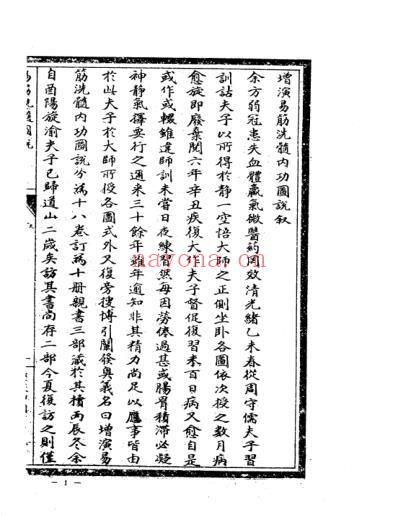 增演易筋洗髓內功圖說叙
余方弱冠患失血體羸氣微醫药罔效清光緒乙未春從周守儒夫子習
訓詁夫子以所得於靜一空悟大師之正側坐卧各圖依次授之數月病
愈旋即廢棄閱六年辛丑疾復大作夫子督促復習未百日病又愈自是
或作或輟雖違師訓未嘗日夜練習然每因勞倦過甚或腸胃積滯必凝
神靜氣得要行之邇來三十餘年雖年逾知非其精力尚足以應事皆由
於此夫子於大師所授各圖式外又復旁搜博引闡發奥義名曰增演易
筋洗髓內功圖說分為十八卷訂為十册親書三部藏於其積丙辰冬余
自酉陽旋渝夫子已歸道山二歲矣訪其書尚存二部今夏復訪之則僅
筋洗髓圖說
nayona.cn
- 1 -